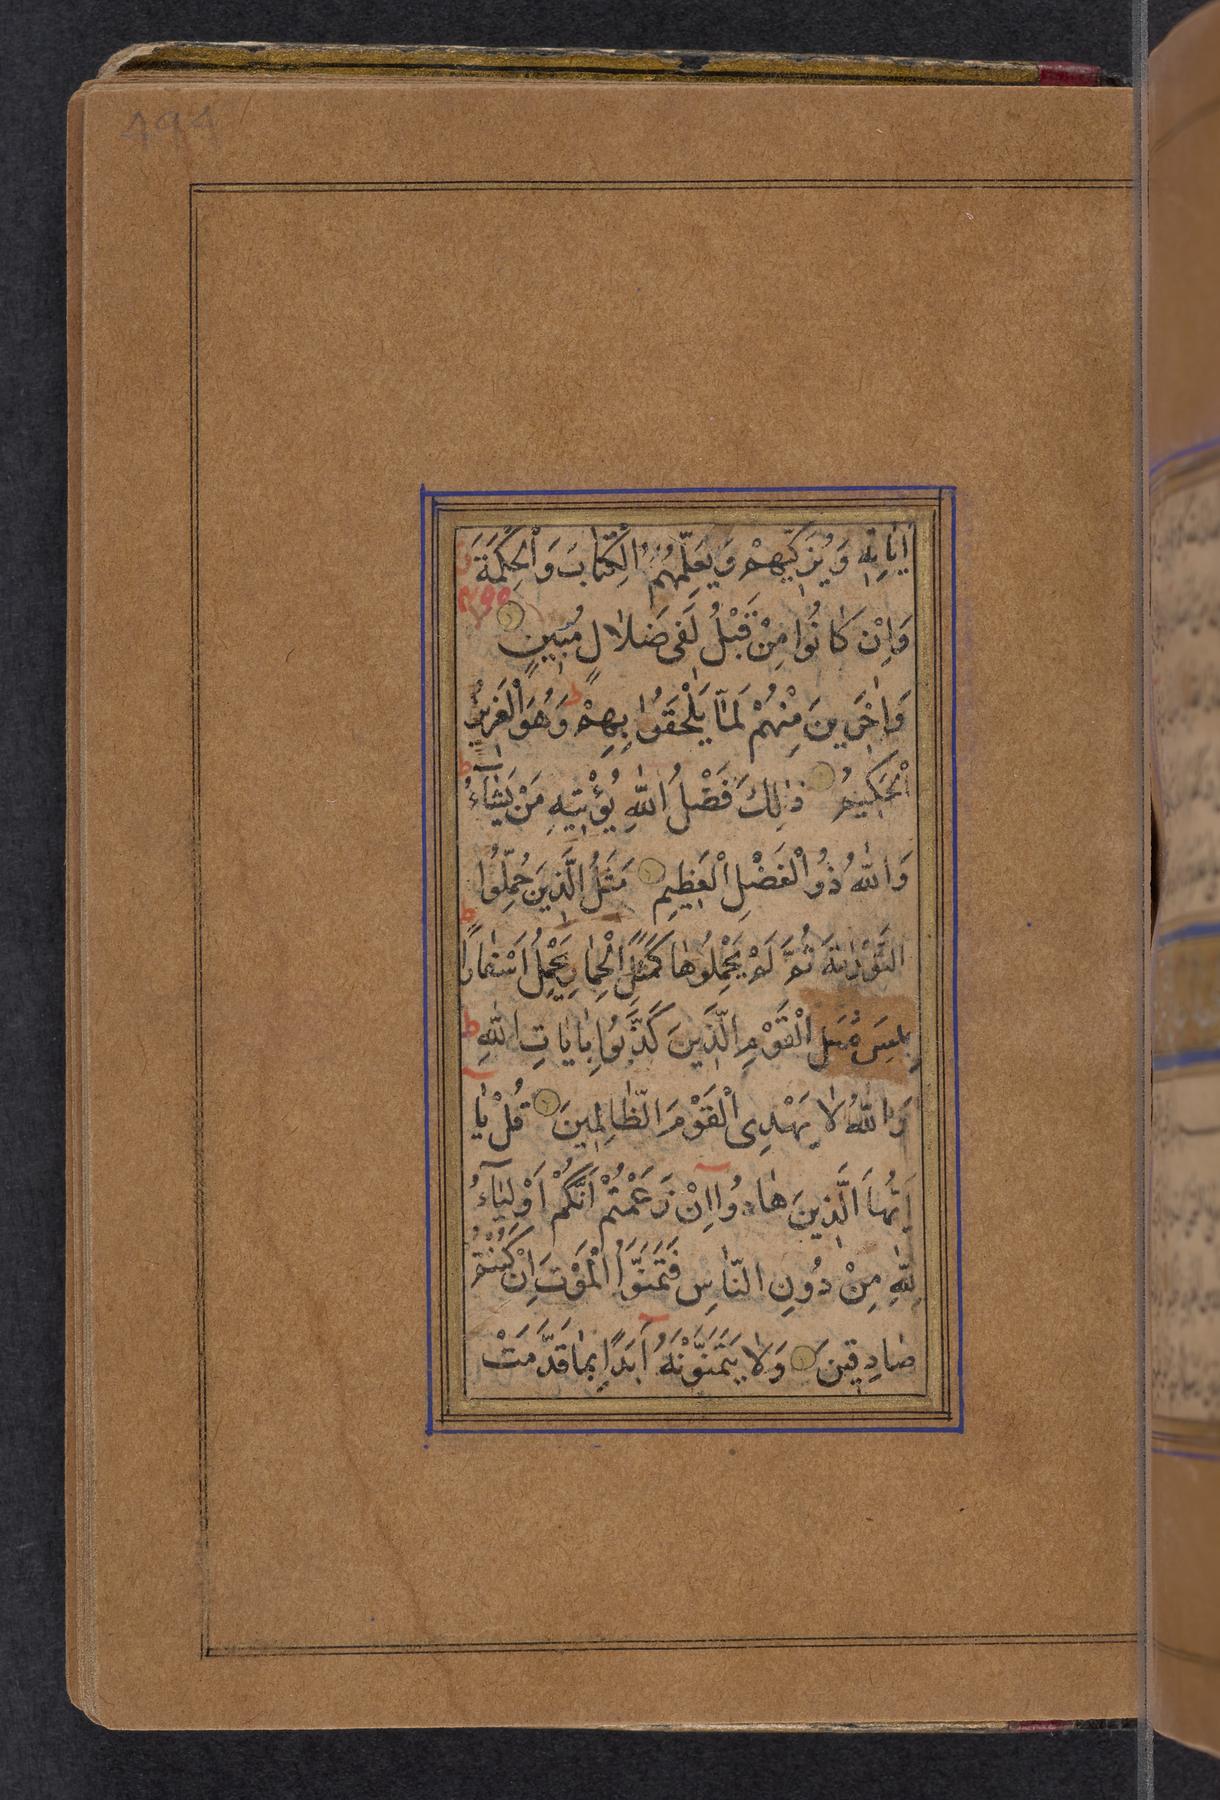 494
اٰيَاتِهٖ وَيُزَكّٖيهِمْ وَيُعَلِّمُهُمُ الْكِتَابَ وَالْحِكْمَةَ
وَاِنْ كَانُوا مِنْ قَبْلُ لَفٖى ضَلَالٍ مُبٖينٍ
وَاٰخَرٖينَ مِنْهُمْ لَمَّا يَلْحَقُوا بِهِمْ ط وَهُوَ الْعَزٖيزُ
الْحَكٖيمُ ذٰلِكَ فَضْلُ اللّٰهِ يُؤْتٖيهِ مَنْ يَشَآءُ ط
وَاللّٰهُ ذُو الْفَضْلِ الْعَظٖيمِ مَثَلُ الَّذٖينَ حُمِّلُوا
التَّوْرٰيةَ ثُمَّ لَمْ يَحْمِلُوهَا كَمَثَلِ الْحِمَارِ يَحْمِلُ اَسْفَارًا ط
بِئْسَ مَثَلُ الْقَوْمِ الَّذٖينَ كَذَّبُوا بِاٰيَاتِ اللّٰهِ ط
وَاللّٰهُ لَا يَهْدِى الْقَوْمَ الظَّالِمٖينَ قُلْ يَا
اَيُّهَا الَّذٖينَ هَادُوا اِنْ زَعَمْتُمْ اَنَّكُمْ اَوْلِيَآءُ
لِلّٰهِ مِنْ دُونِ النَّاسِ فَتَمَنَّوُا الْمَوْتَ اِنْ كُنْتُمْ
صَادِقٖينَ وَلَا يَتَمَنَّوْنَهُ اَبَدًا بِمَا قَدَّمَتْ